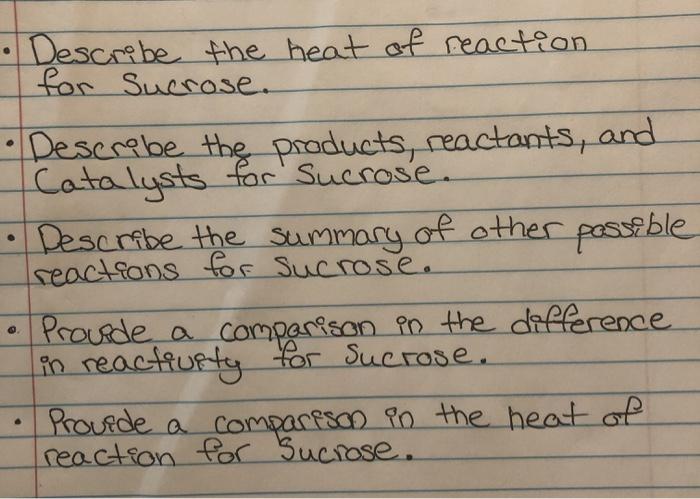 • Describe the heat of reaction
for Sucrose.
• Describe the products, reactants, and
Catalysts for Sucrose.
• Describe the summary of other possible
reactions for Sucrose.
• Provide a comparison in the difference
in reactivity for Sucrose.
• Provide a comparison in the heat of
reaction for Sucrose.